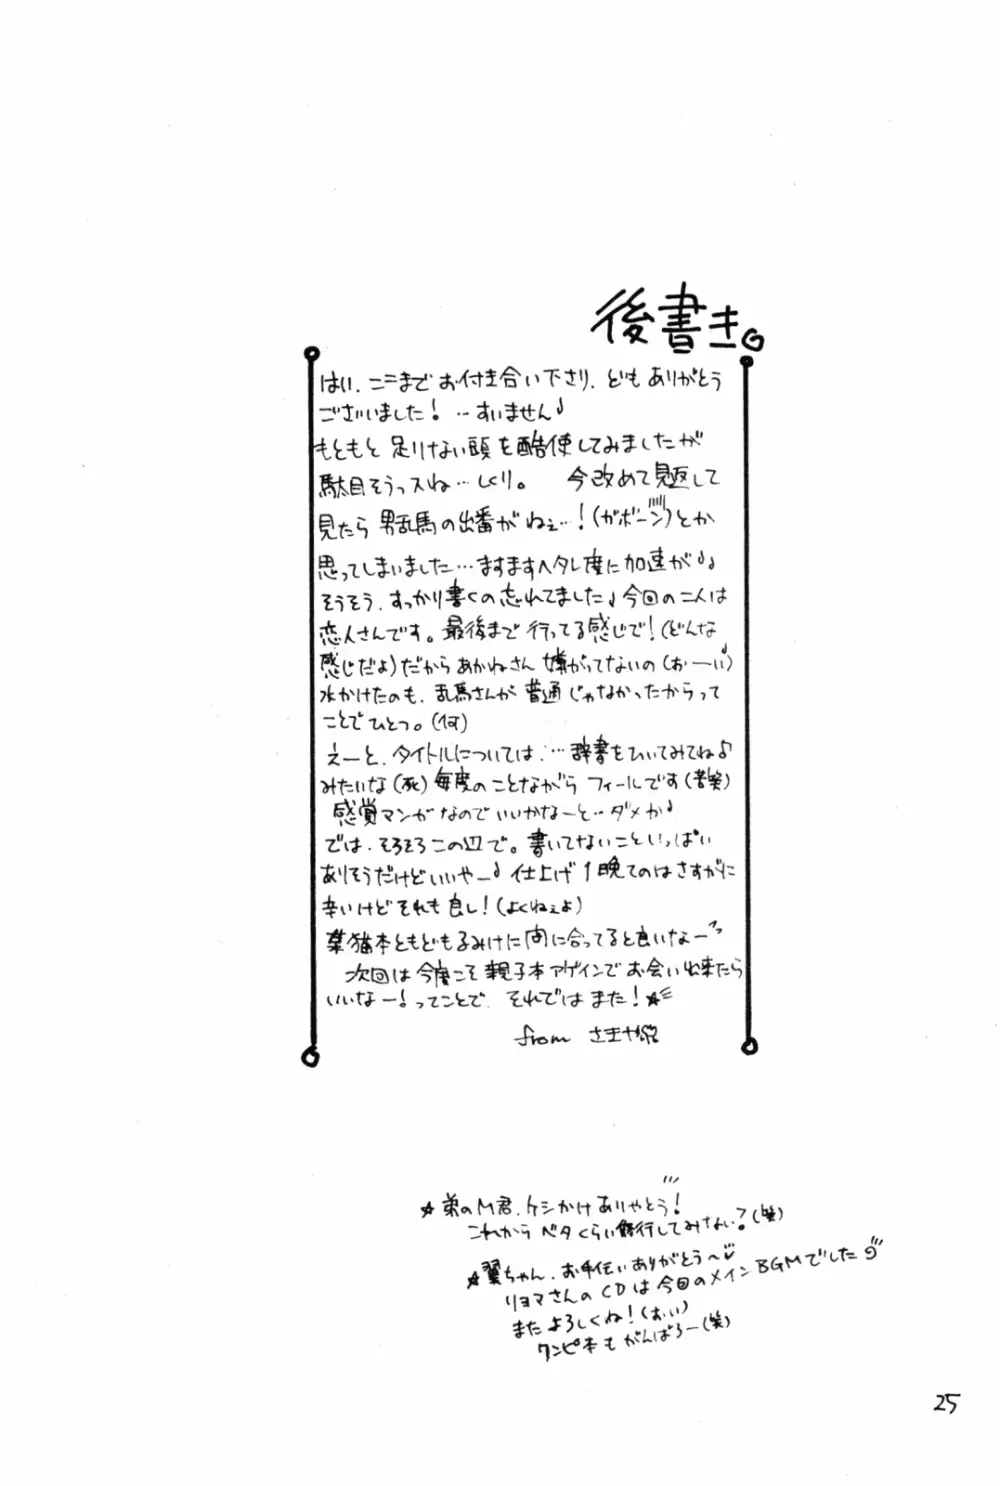 後書き。
はい、ここまでお付き合い下さり、どもありがとう
ございました！…すいません♪
もともと足りない頭を酷使してみましたが
駄目そうっスね…しくり。 今改めて見返して
見たら男乱馬の出番がねぇ…！(ガボーン)とか
思ってしまいました…ますますヘタレ度に加速が♪♪
そうそう、すっかり書くの忘れてました♪今回の二人は
恋人さんです。最後まで行ってる感じで！(どんな
感じだよ)だからあかねさん嫌がってないの(おーい)
水かけたのも、乱馬さんが普通じゃなかったからって
ことでひとつ。(何)
えーと、タイトルについては…辞書をひいてみてね♪
みたいな(死)毎度のことながらフィールです(苦笑)
感覚マンガなのでいいかなーと…ダメか♪
では、そろそろこの辺で。書いてないこといっぱい
ありそうだけどいいやー♪仕上げ1晩てのはさすがに
辛いけどそれも良し！(よくねぇよ)
葉猫本ともどもるみけに間に合ってると良いなーっ
次回は今度こそ親子本アゲインでお会い出来たら
いいなー！ってことで、それではまた！★
from さまやん
★弟のM君、ケシかけありやとう！
これからベタくらい修行してみない？(笑)
★翼ちゃん、お手伝いありがとう〜♡
リョマさんのCDは今回のメインBGMでした
またよろしくね！(おい)
ワンピ本もがんばろー(笑)
25